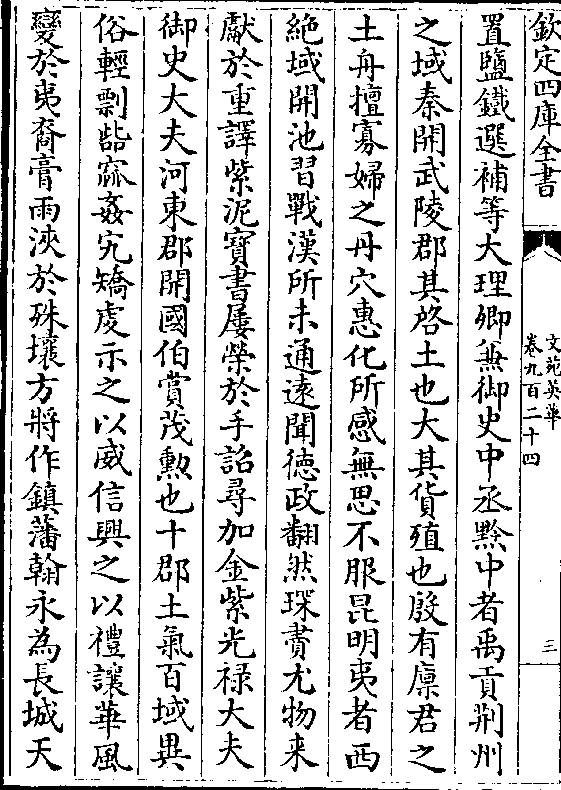 欽定四庫全書
文苑英華
卷九百二十四
三
置鹽鐵選補等大理卿兼御史中丞黔中者禹貢荆州
之域秦開武陵郡其啓土也大其貨殖也殷有廪君之
土舟擅寡婦之丹穴惠化所感無思不服昆明夷者西
絶域開池習戰漢所未通遠聞徳政翻然琛賮尤物来
獻於重譯紫泥寶書屢榮於手詔尋加金紫光禄大夫
御史大夫河東郡開國伯賞茂勲也十郡土氣百域異
俗輕剽呰窳姦宄矯䖍示之以威信興之以禮讓華風
變於夷裔膏雨浹於殊壤方將作鎮藩翰永為長城天